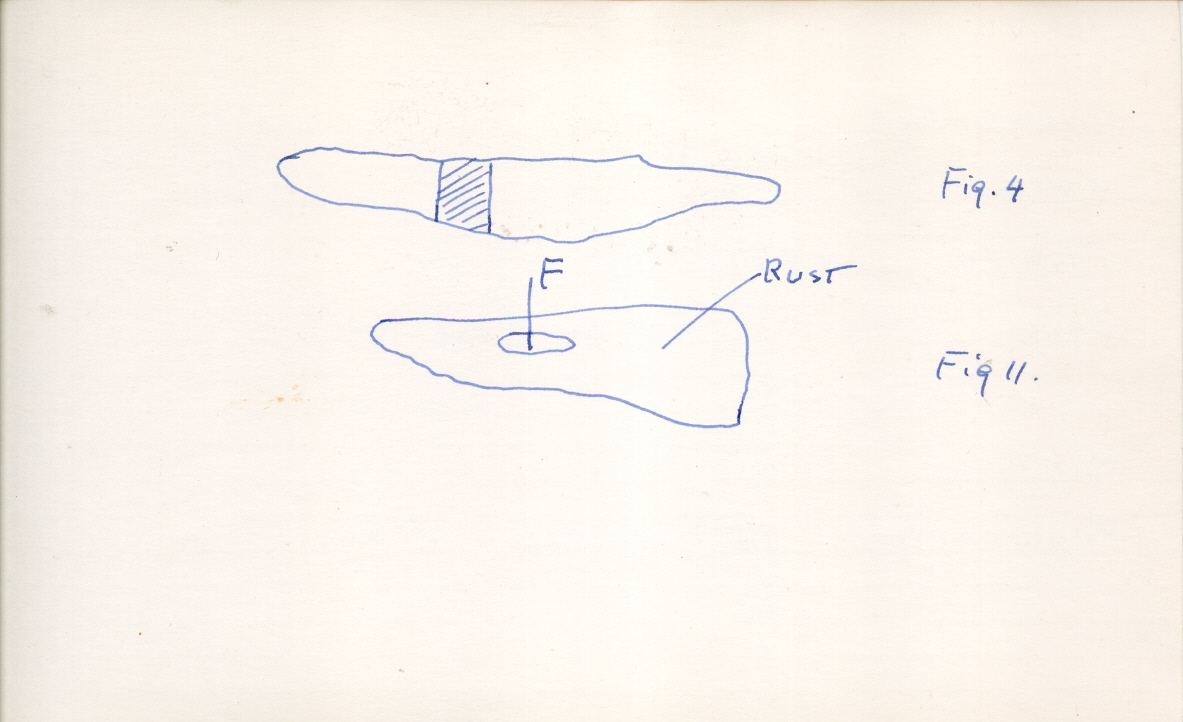 Fig. 4
F
Rust
Fig 11.